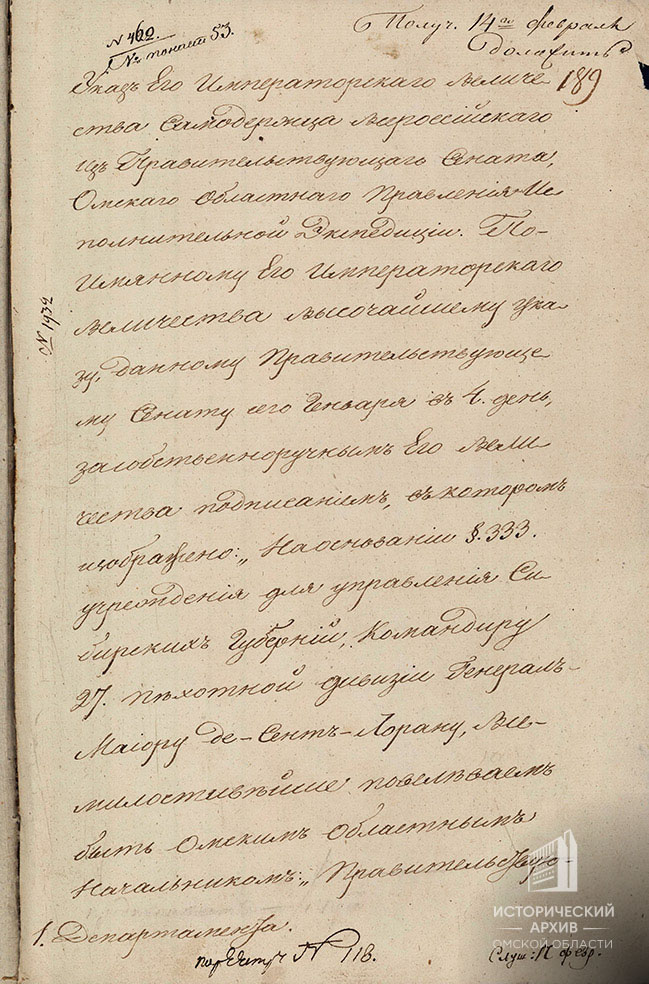 N 460.
Получ. 14го февраля
доложить
189
Указъ Его Императорскаго Величе
ства Самодержца Всероссійскаго
изъ Правительствующаго Сената,
Омскаго Областнаго Правленія Ис
полнительной Экспедиціи. По-
имянному Его Императорскаго
Величества высочайшему ука
зу, данному Правительствующе
му Сенату сего Генваря въ 4. день,
засобственноручнымъ Его Вели
чества подписаніемъ, въкоторомъ
изображено: „Наоснованіи §. 333.
учрежденія для управленія Си
бирскихъ Губерній, Командиру
27. пѣхотной дивизіи Генералъ-
Маіору де-Сентъ-Лорану, Все-
милостивѣйше повелѣваемъ
быть Омскимъ Областнымъ
Начальникомъ:„ Правительствую-
1. Департамента.
N 1932
N 118.
Слуш: февр.
ИСТОРИЧЕСКИЙ
АРХИВ
ОМСКОЙ ОБЛАСТИ